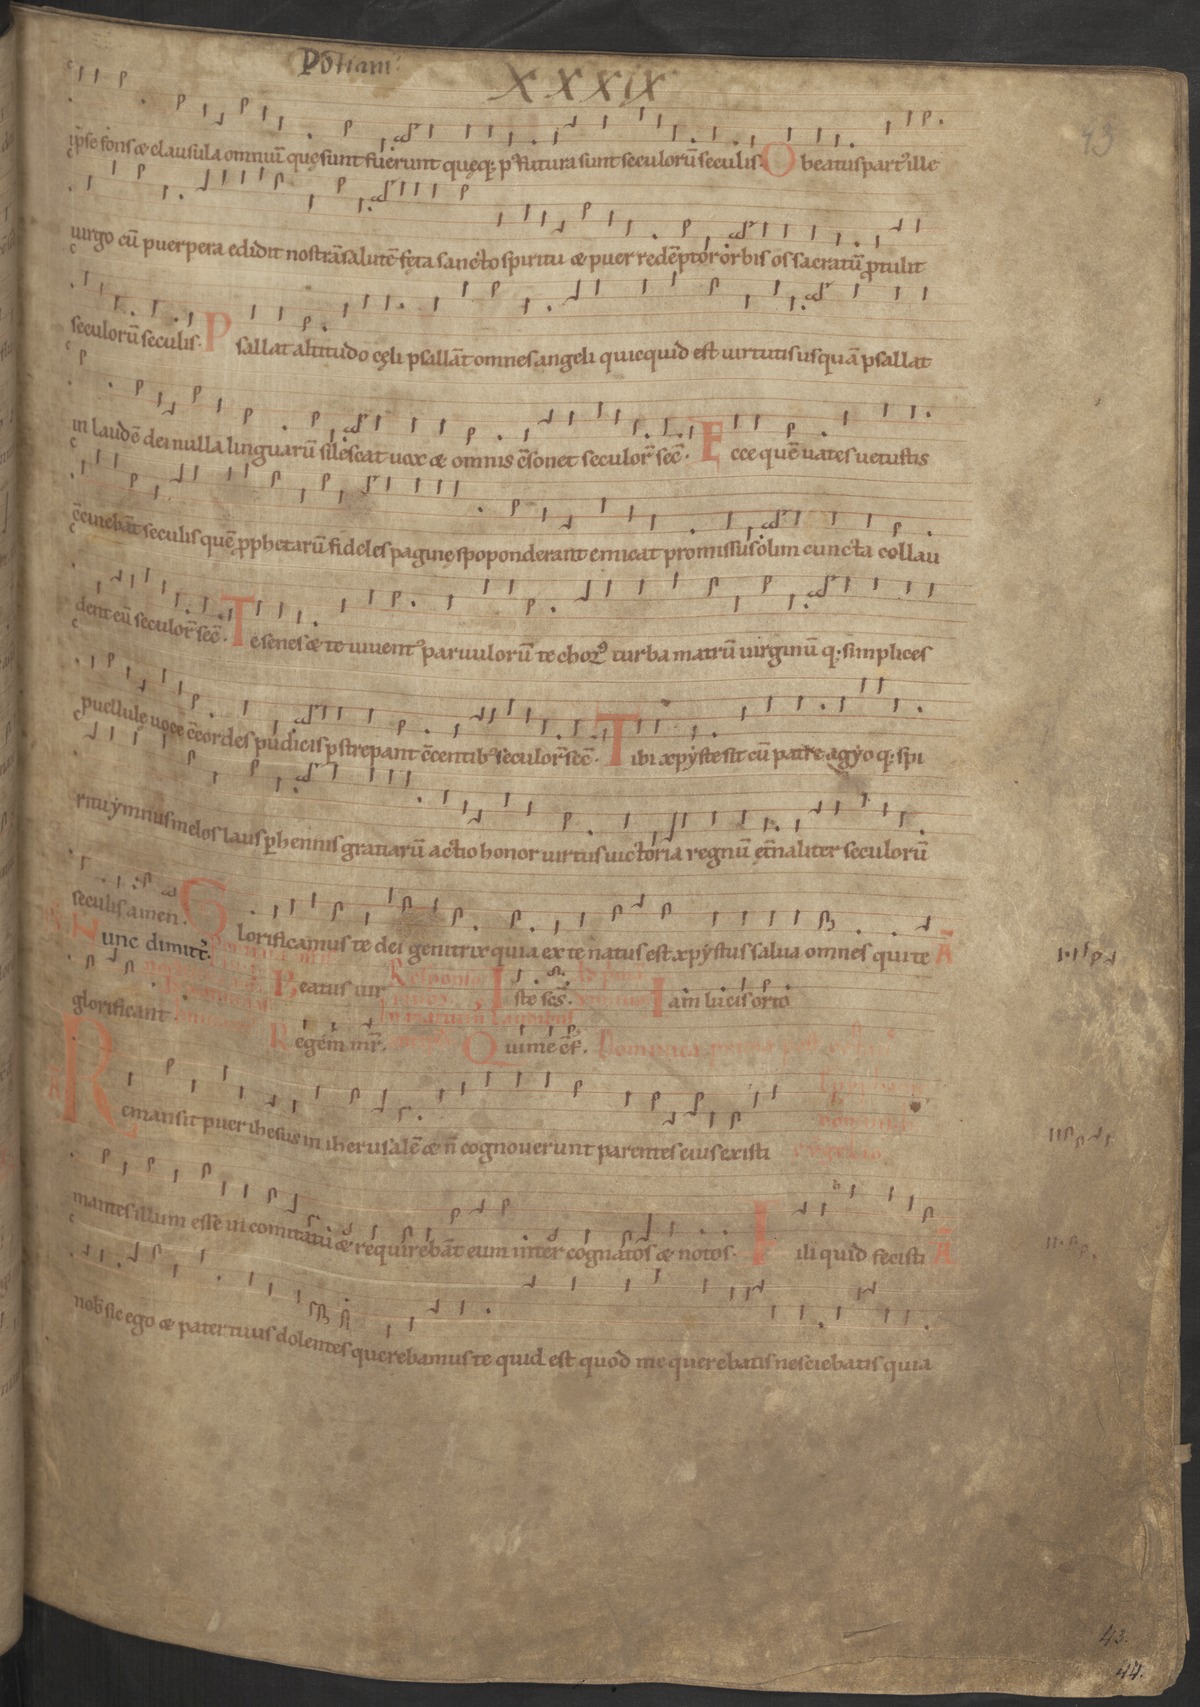 Potiam
XXXIX
43
ip̄se fons & clausula omniū quęsunt fuerunt quęq; p̄ futura sunt seculorū seculis. O beatus partꝰ ille
uirgo cū puerpera edidit nostrā salutē feta sancto spiritu & puer redēptor orbis os sacratū ꝓtulit
seculorū seculis. Psallat altitudo cęli psallāt omnes angeli quicquid est uirtutis usquā psallat
in laudē dei nulla linguarū silescat uox & omnis c̄sonet seculoꝝ̄ sec̄. Ecce quē uates uetustis
c̄cinebāt seculis quē ꝓphetarū fideles pagine spoponderant emicat promissus olim cuncta collau
dent eū seculor̄ sec̄. Te senes & te iuuentꝰ paruulorū te chorꝰ turba matrū uirginū q; simplices
puellule uoce c̄cordes pudicis ꝑstrepant c̄centibꝰ seculor̄ sec̄. Tibi xpȳste sit cū patre agyo q; spi
ritu ẏmnus melos laus ꝑhennis gratiarū actio honor uirtus uictoria regnū et̄naliter seculorū
seculis amen. Glorificamus te dei genitrix quia ex te natus est xpȳstus salua omnes qui te Ā
Nunc dimitt̄.
glorificant. Beatus uir Iste sc̄s. Iam lucis orto
Regem mr̄. Qui me c̄f.
Remansit puer ihesus in iherusalē & n̄ cognouerunt parentes eius existi
mantes illum esse in comitatu & requirebāt eum inter cognatos & notos. Fili quid fecisti Ā
nob̄ sic ego & pater tuus dolentes querebamus te quid est quod me querebatis nesciebatis quia
43.
44.